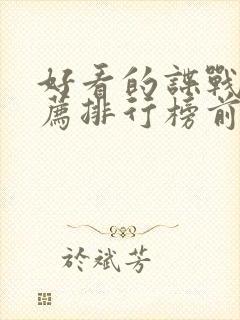 好看的諜戰
薦排行榜前
於斌芳